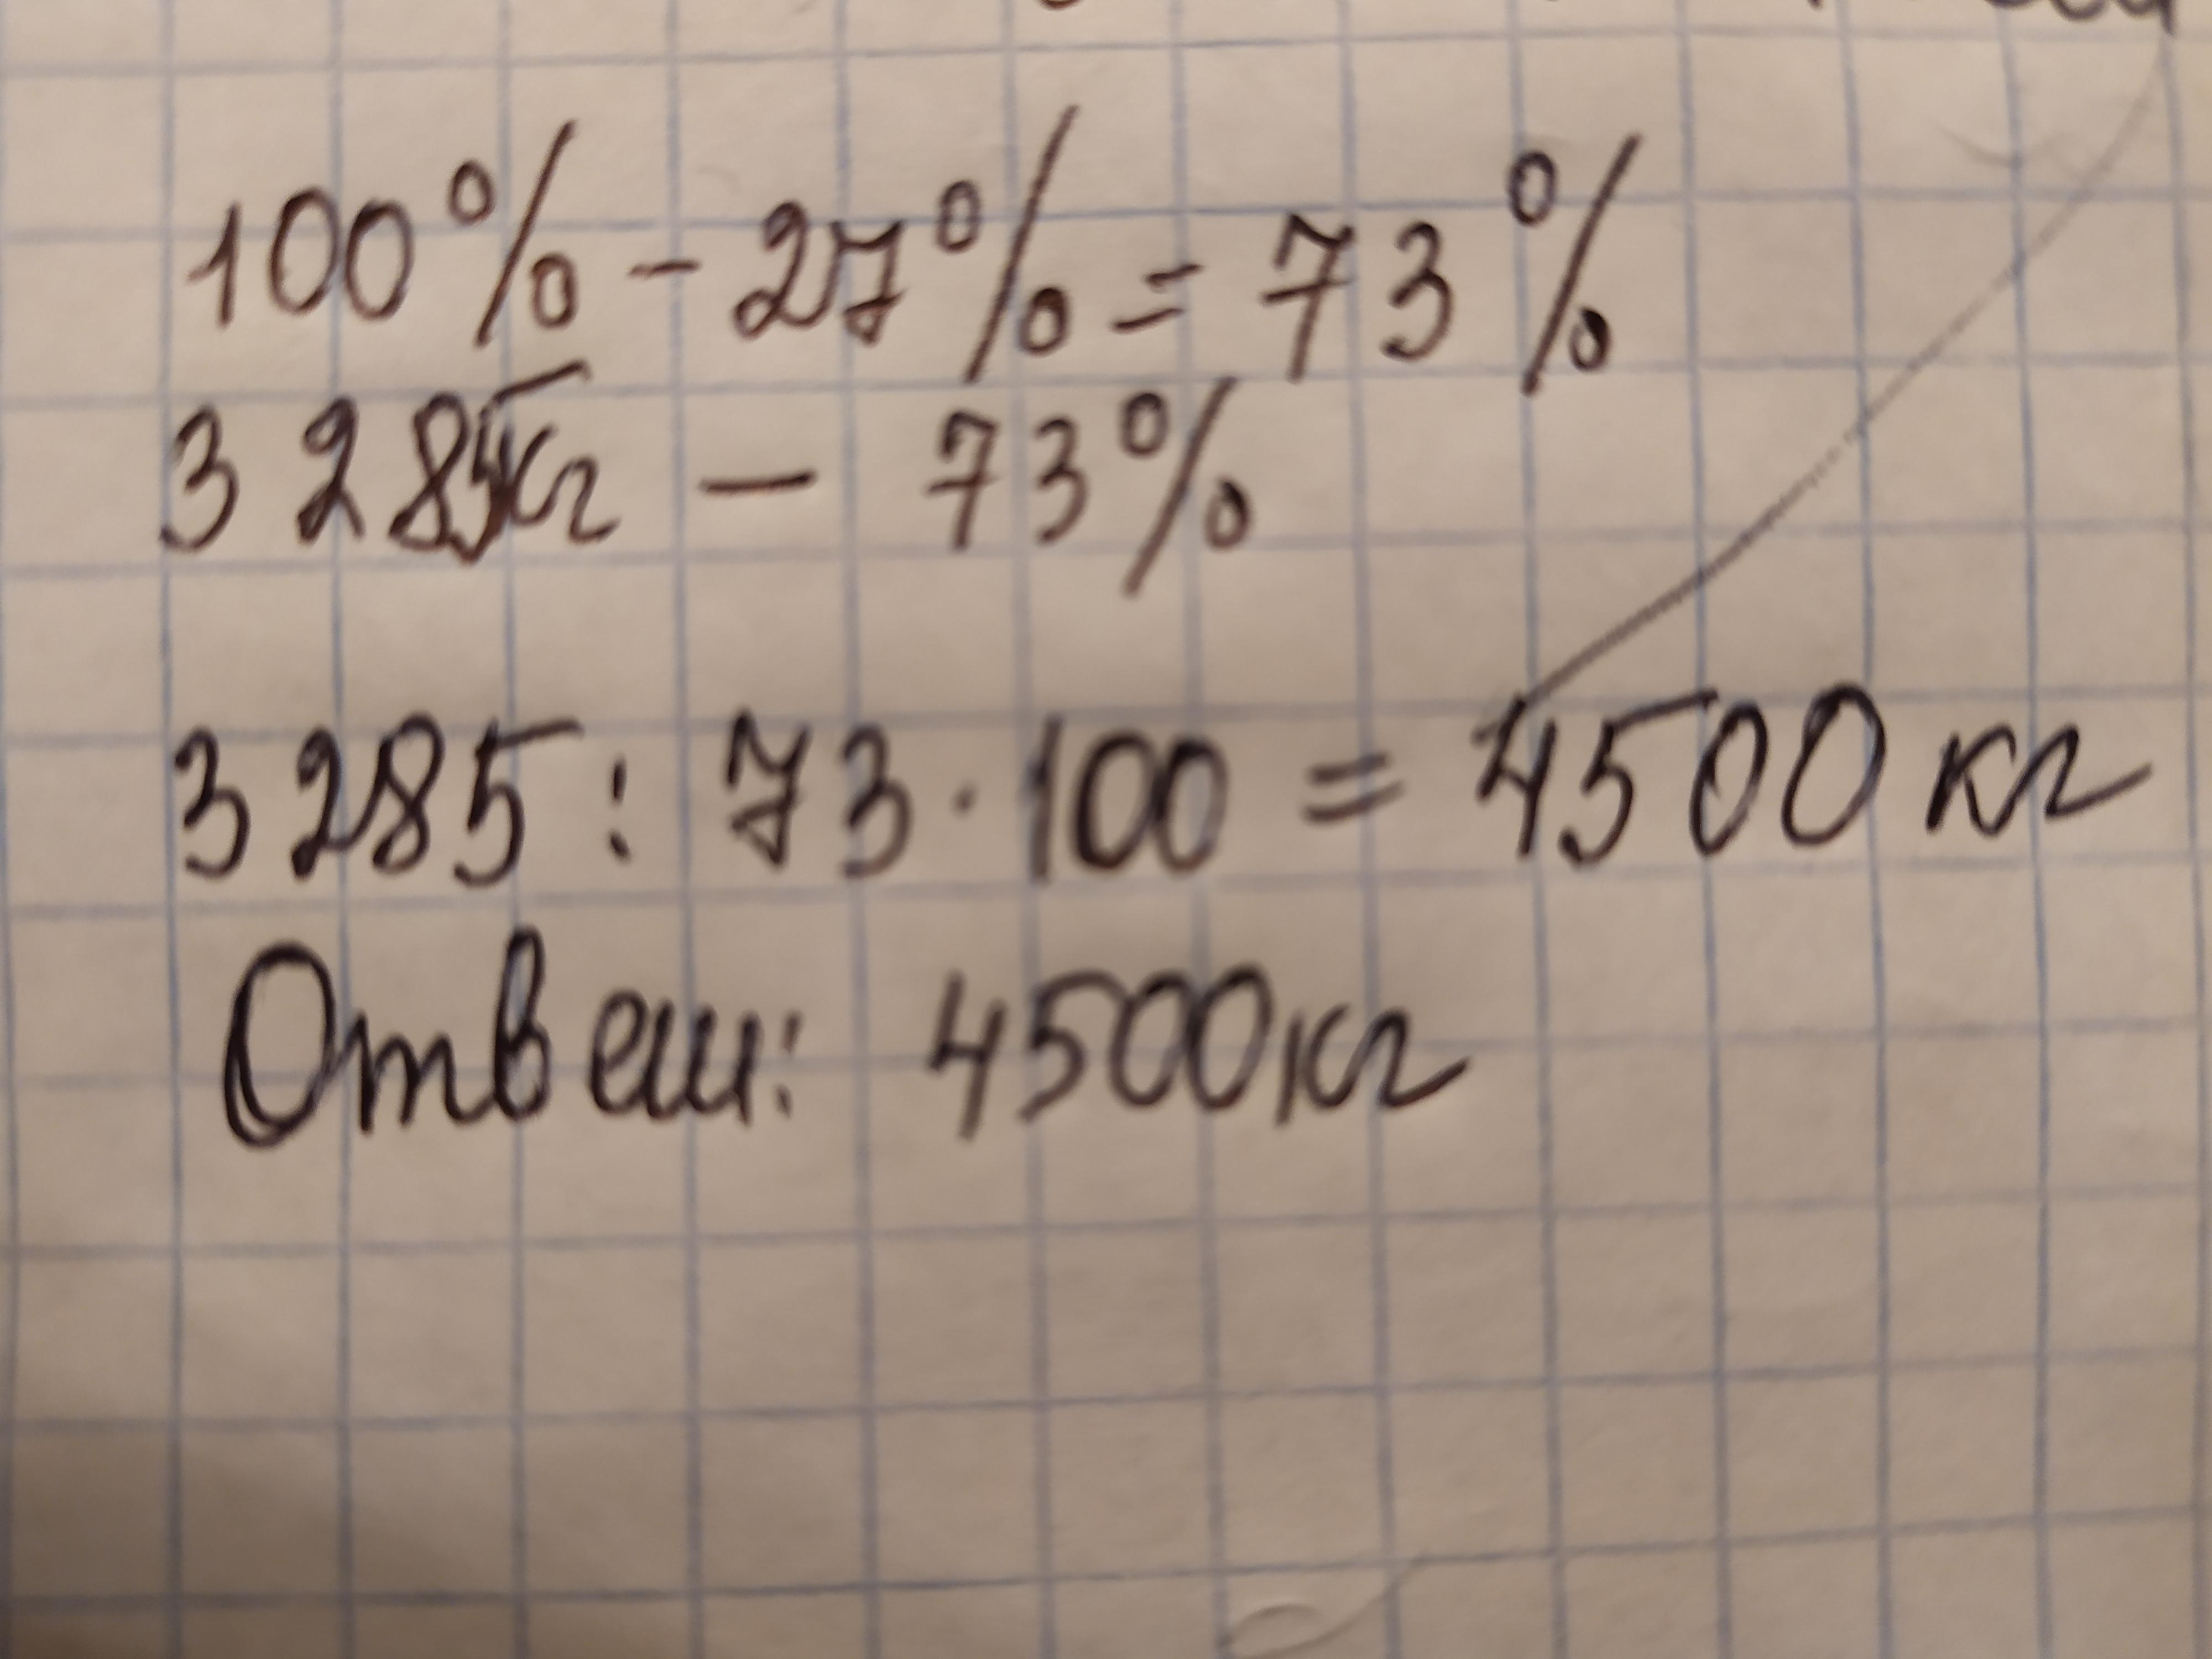 100% - 27% = 73%
3285кг — 73%
3285 : 73 · 100 = 4500 кг
Ответ: 4500кг